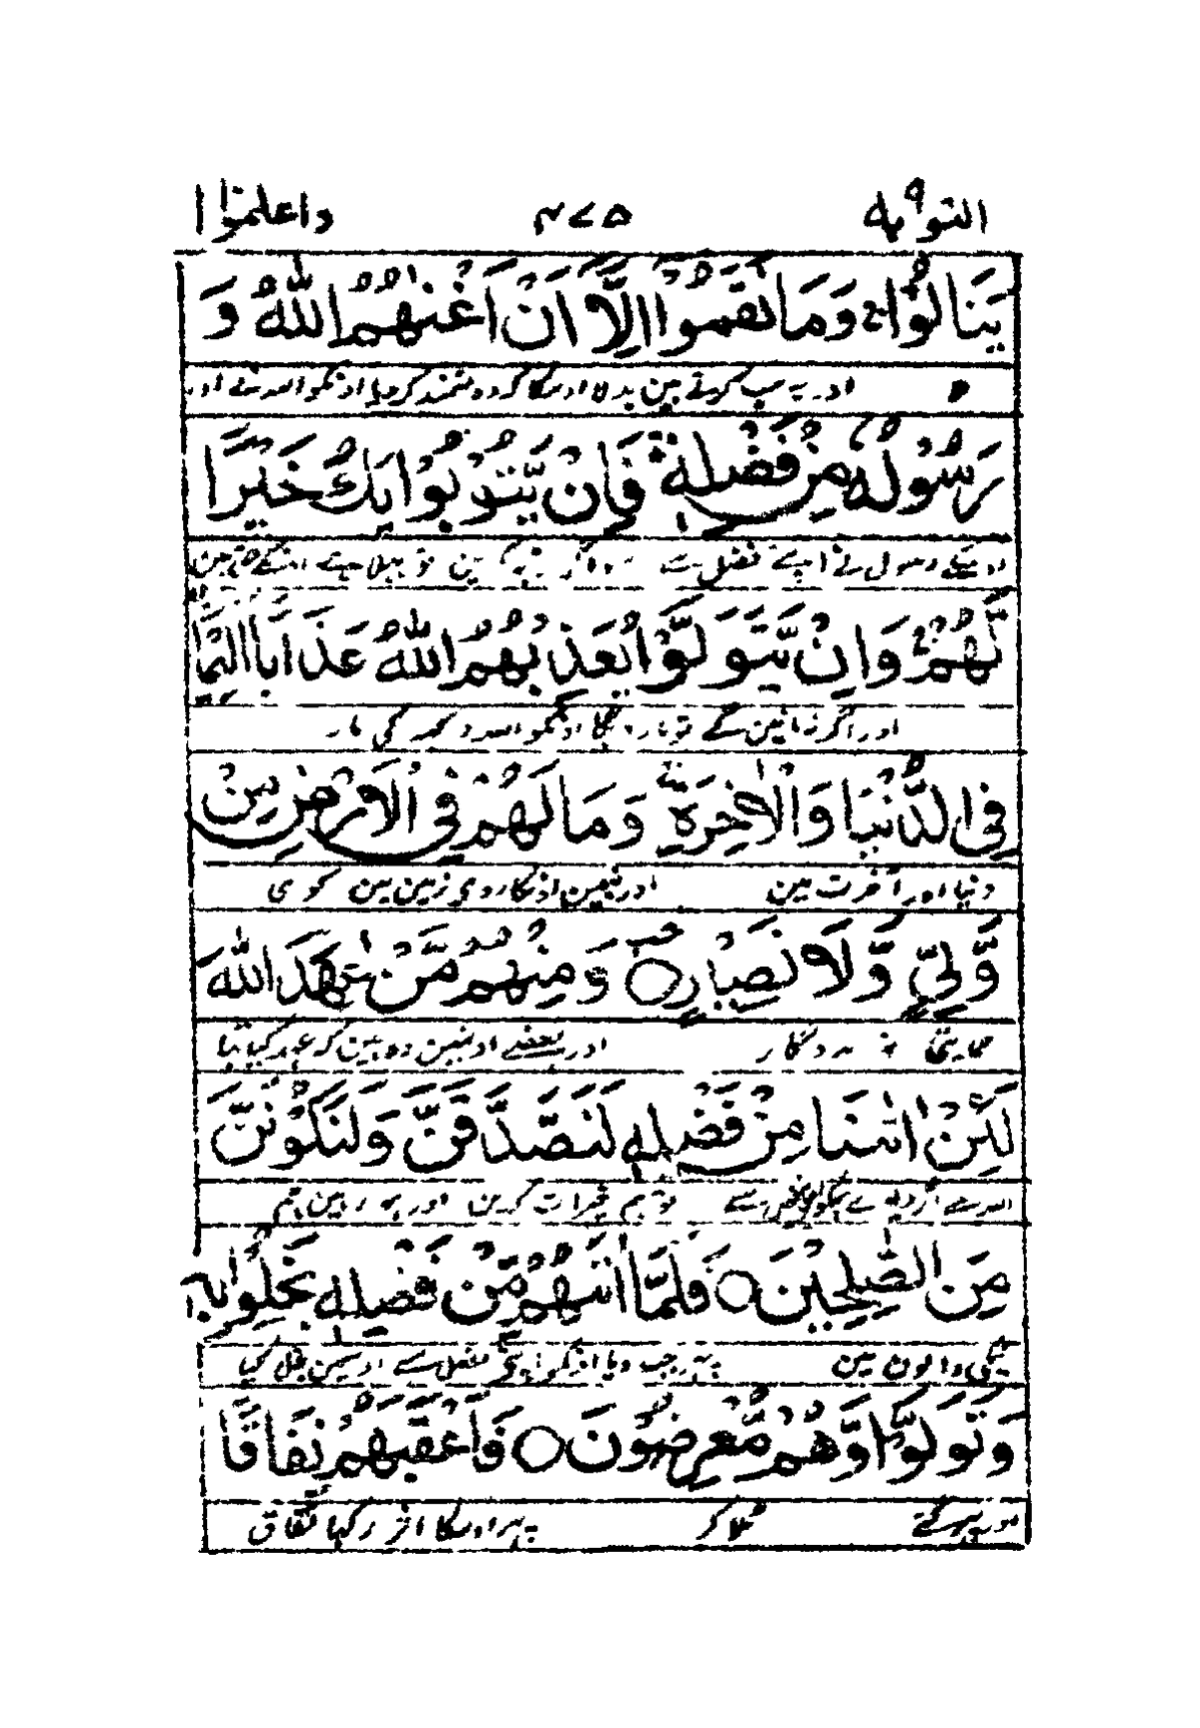 التوبة ٩ ٢٧٥ واعلموا ١٠
يَنَالُوْا ۚ وَمَا نَقَمُوْٓا اِلَّآ اَنْ اَغْنٰىهُمُ اللّٰهُ وَ
اور یہ سب کرتے ہین بدلا اوسکا کہ دولتمند کر دیا اونکو اللہ نے اور
رَسُوْلُهٗ مِنْ فَضْلِهٖ ۚ فَاِنْ يَّتُوْبُوْا يَكُ خَيْرًا
رسول نے اپنے فضل سے سو اگر توبہ کرین تو بھلا ہے اونکے حق مین
لَّهُمْ ۚ وَاِنْ يَّتَوَلَّوْا يُعَذِّبْهُمُ اللّٰهُ عَذَابًا اَلِيْمًا
اور اگر نہ مانین گے تو مار دیگا اونکو اللہ دکھ کی مار
فِى الدُّنْيَا وَالْاٰخِرَةِ ۚ وَمَا لَهُمْ فِى الْاَرْضِ مِنْ
دنیا اور آخرت مین اور نہین اونکا روی زمین مین کوی
وَّلِيٍّ وَّلَا نَصِيْرٍ ○ وَمِنْهُمْ مَّنْ عٰهَدَ اللّٰهَ
حمایتی نہ مددگار اور بعضے اونمین وہ ہین کہ عہد کیا تھا
لَئِنْ اٰتٰىنَا مِنْ فَضْلِهٖ لَنَصَّدَّقَنَّ وَلَنَكُوْنَنَّ
اللہ سے اگر دیوے ہمکو اپنے فضل سے تو ہم خیرات کرین اور ہو رہین ہم
مِنَ الصّٰلِحِيْنَ ○ فَلَمَّآ اٰتٰىهُمْ مِّنْ فَضْلِهٖ بَخِلُوْا بِهٖ
نیکی والون مین پھر جب دیا اونکو اپنے فضل سے اوسمین بخل کیا
وَتَوَلَّوْا وَّهُمْ مُّعْرِضُوْنَ ○ فَاَعْقَبَهُمْ نِفَاقًا
اور پھر گئے ٹلا کر پھر اوسکا اثر رکھا نفاق